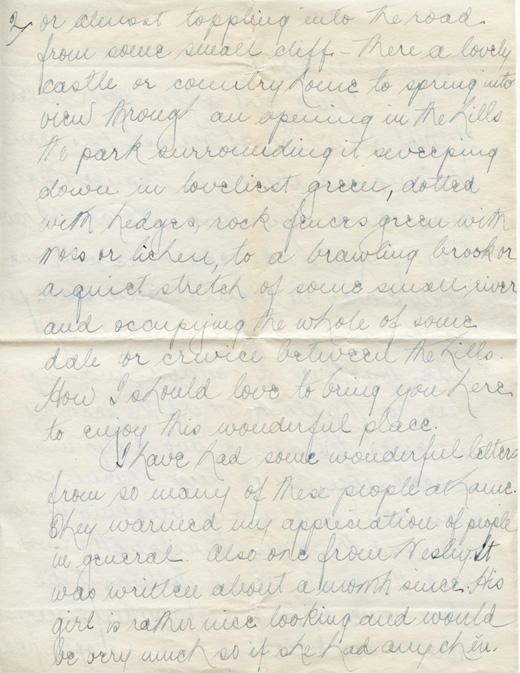 2/ or almost toppling into the road
from some small cliff – there a lovely
castle or country home to spring into
view through an opening in the hills
the park surrounding it sweeping
down in loveliest green, dotted
with hedges, rock fences green with
moss or lichen, to a brawling brook or
a quiet stretch of some small river
and occupying the whole of some
dale or crivice between the hills.
How I should love to bring you here
to enjoy this wonderful place.
I have had some wonderful letters
from so many of these people at home.
They warmed my appreciation of people
in general. Also one from
was written about a month since. His
girl is rather nice looking and would
be very much so if she had any